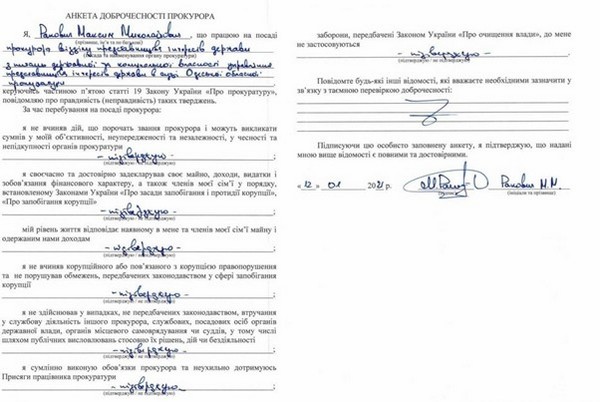 АНКЕТА ДОБРОЧЕСНОСТІ ПРОКУРОРА
Я, Ракович Максим Миколайович, що працюю на посаді
(прізвище, ім'я та по батькові)
прокурора відділу представництва інтересів держави
(посада та найменування органу прокуратури)
з питань державної та комунальної власності управління
представництва інтересів держави в суді Одеської обласної
прокуратури
керуючись частиною п'ятою статті 19 Закону України «Про прокуратуру»,
повідомляю про правдивість (неправдивість) таких тверджень.
За час перебування на посаді прокурора:
я не вчиняв дій, що порочать звання прокурора і можуть викликати
сумнів у моїй об'єктивності, неупередженості та незалежності, у чесності та
непідкупності органів прокуратури
- підтверджую - ;
(підтверджую / не підтверджую)
я своєчасно та достовірно задекларував своє майно, доходи, видатки і
зобов'язання фінансового характеру, а також членів моєї сім'ї у порядку,
встановленому Законами України «Про засади запобігання і протидії корупції»,
«Про запобігання корупції»
- підтверджую - ;
(підтверджую / не підтверджую)
мій рівень життя відповідає наявному в мене та членів моєї сім'ї майну і
одержаним нами доходам
- підтверджую - ;
(підтверджую / не підтверджую)
я не вчиняв корупційного або пов'язаного з корупцією правопорушення
та не порушував обмежень, передбачених законодавством у сфері запобігання
корупції
- підтверджую - ;
(підтверджую / не підтверджую)
я не здійснював у випадках, не передбачених законодавством, втручання
у службову діяльність іншого прокурора, службових, посадових осіб органів
державної влади, органів місцевого самоврядування чи суддів, у тому числі
шляхом публічних висловлювань стосовно їх рішень, дій чи бездіяльності
- підтверджую - ;
(підтверджую / не підтверджую)
я сумлінно виконую обов'язки прокурора та неухильно дотримуюсь
Присяги працівника прокуратури
- підтверджую - ;
(підтверджую / не підтверджую)
заборони, передбачені Законом України «Про очищення влади», до мене
не застосовуються
- підтверджую - .
(підтверджую / не підтверджую)
Повідомте будь-які інші відомості, які вважаєте необхідними зазначити у
зв'язку з таємною перевіркою доброчесності:
Підписуючи цю особисто заповнену анкету, я підтверджую, що надані
мною вище відомості є повними та достовірними.
« 12 » 01 2021 р. Ракович М.М.
(підпис) (ініціали та прізвище)